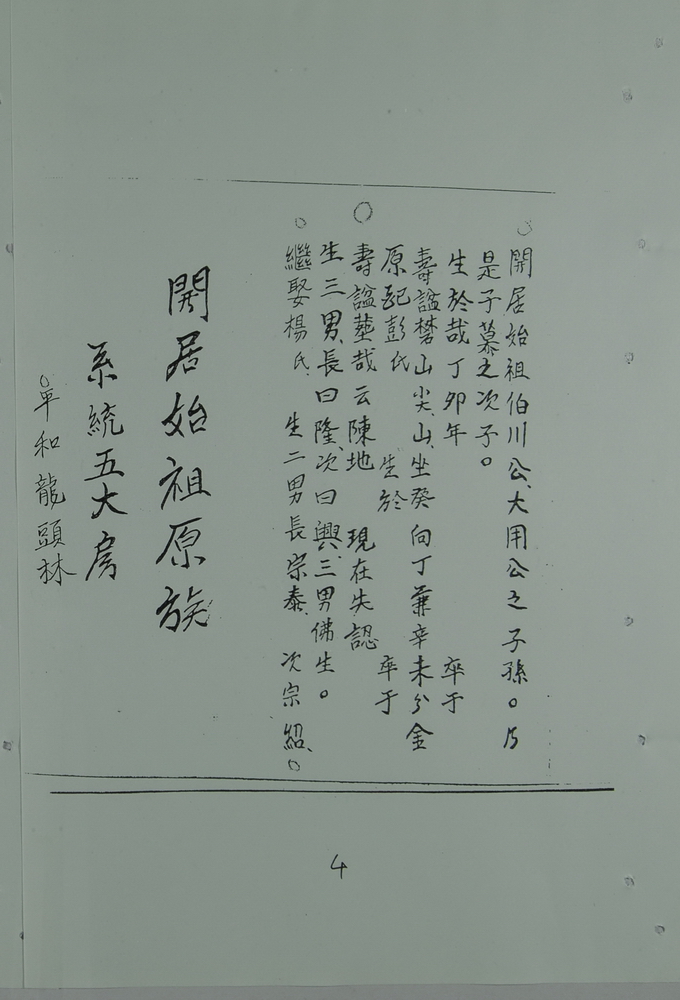 開居始祖伯川公、大用公之子孫。乃
是子慕之次子。
生於哉丁卯年 卒于
壽諡樊山尖、山坐癸向丁兼辛未分金
原配彭氏 生於 卒于
壽諡塟哉云陳地 現在失認
生三男、長曰隆、次曰興、三男佛生。
繼娶楊氏、生二男長宗泰、次宗紹、
開居始祖原族
系統五大房
單和龍頭林
4